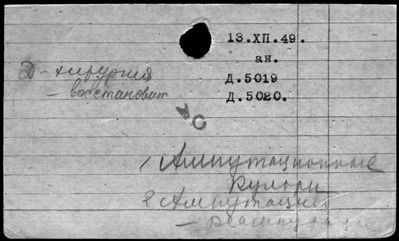 13.XII.49.
ан.
Д.5019
Д.5020.
Д-хирургия
- восстановит
1 Ампутационные
2 Ампутация